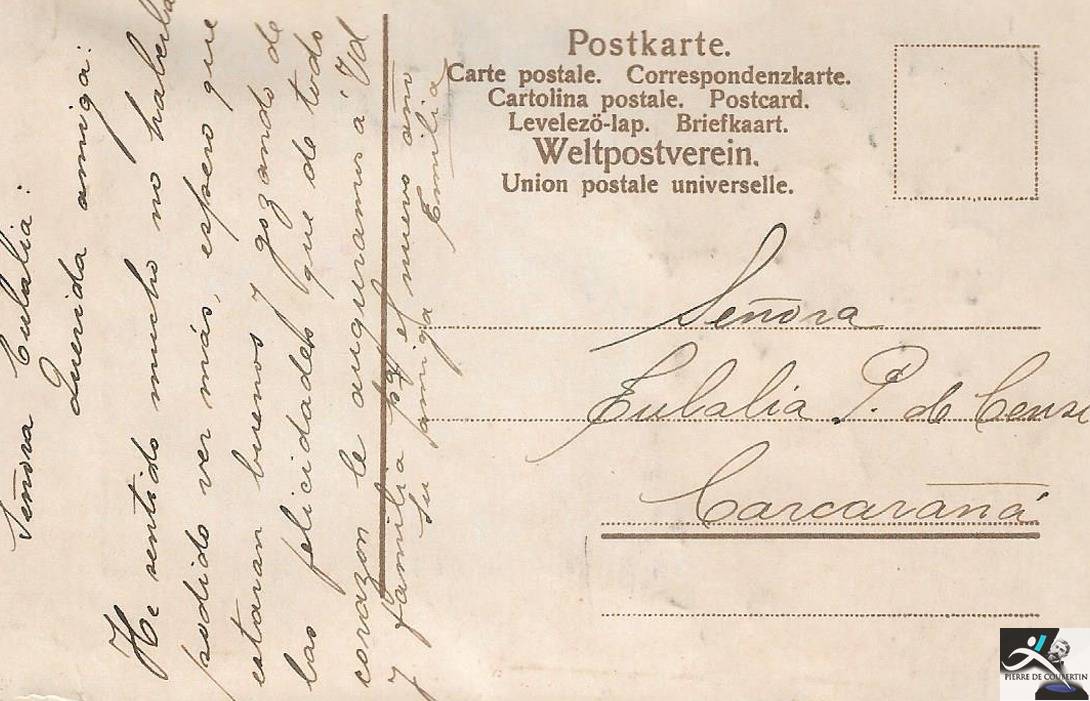 Señora Eulalia:
Querida amiga:
He sentido mucho no haberla
podido ver más, espero que
estaran buenos y gozando de
las felicidades que de todo
corazon le auguramos á Vd
y familia pª el nuevo año
Su amiga Emilia
Postkarte.
Carte postale. Correspondenzkarte.
Cartolina postale. Postcard.
Levelező-lap. Briefkaart.
Weltpostverein.
Union postale universelle.
Señora
Eulalia P. de
Carcarañá
PIERRE DE COUBERTIN